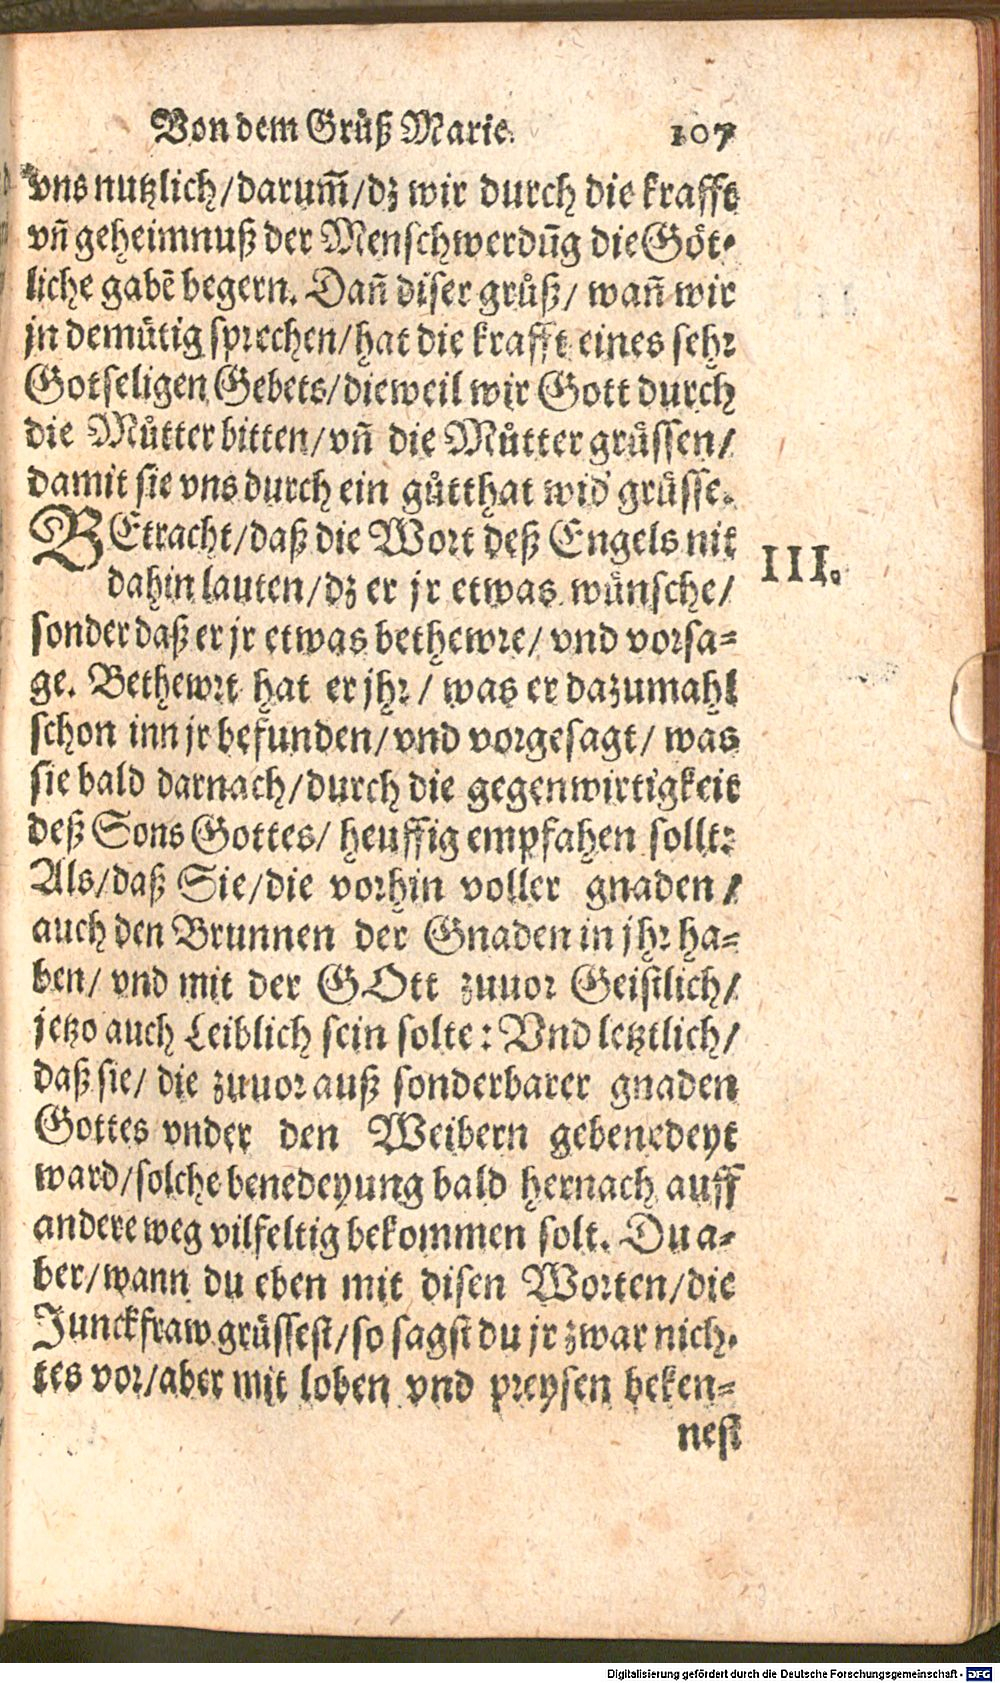 Von dem Gruͤß Marie. 107
vns nutzlich/darum̃/dz wir durch die krafft
vñ geheimnuß der Menschwerdũg die Goͤt-
liche gabẽ begern. Dañ diser gruͤß/ wañ wir
jn demuͤtig sprechen/hat die krafft eines sehr
Gotseligen Gebets/dieweil wir Gott durch
die Muͤtter bitten/vñ die Muͤtter gruͤssen/
damit sie vns durch ein guͤtthat wid̕ gruͤsse.
BEtracht/daß die Wort deß Engels nit
III.
dahin lauten/dz er jr etwas wuͤnsche/
sonder daß er jr etwas bethewre/ vnd vorsa-
ge. Bethewrt hat er jhr/ was er dazumahl
schon inn jr befunden/vnd vorgesagt/ was
sie bald darnach/durch die gegenwirtigkeit
deß Sons Gottes/ heuffig empfahen sollt:
Als/daß Sie/die vorhin voller gnaden/
auch den Brunnen der Gnaden in jhr ha-
ben/ vnd mit der GOtt zuuor Geistlich/
jetzo auch Leiblich sein solte: Vnd letztlich/
daß sie/ die zuuor auß sonderbarer gnaden
Gottes vnder den Weibern gebenedeyt
ward/solche benedeyung bald hernach auff
andere weg vilfeltig bekommen solt. Du a-
ber/wann du eben mit disen Worten/die
Junckfraw gruͤssest/so sagst du jr zwar nich-
tes vor/aber mit loben vnd preysen beken-
nest
Digitalisierung gefördert durch die Deutsche Forschungsgemeinschaft - DFG